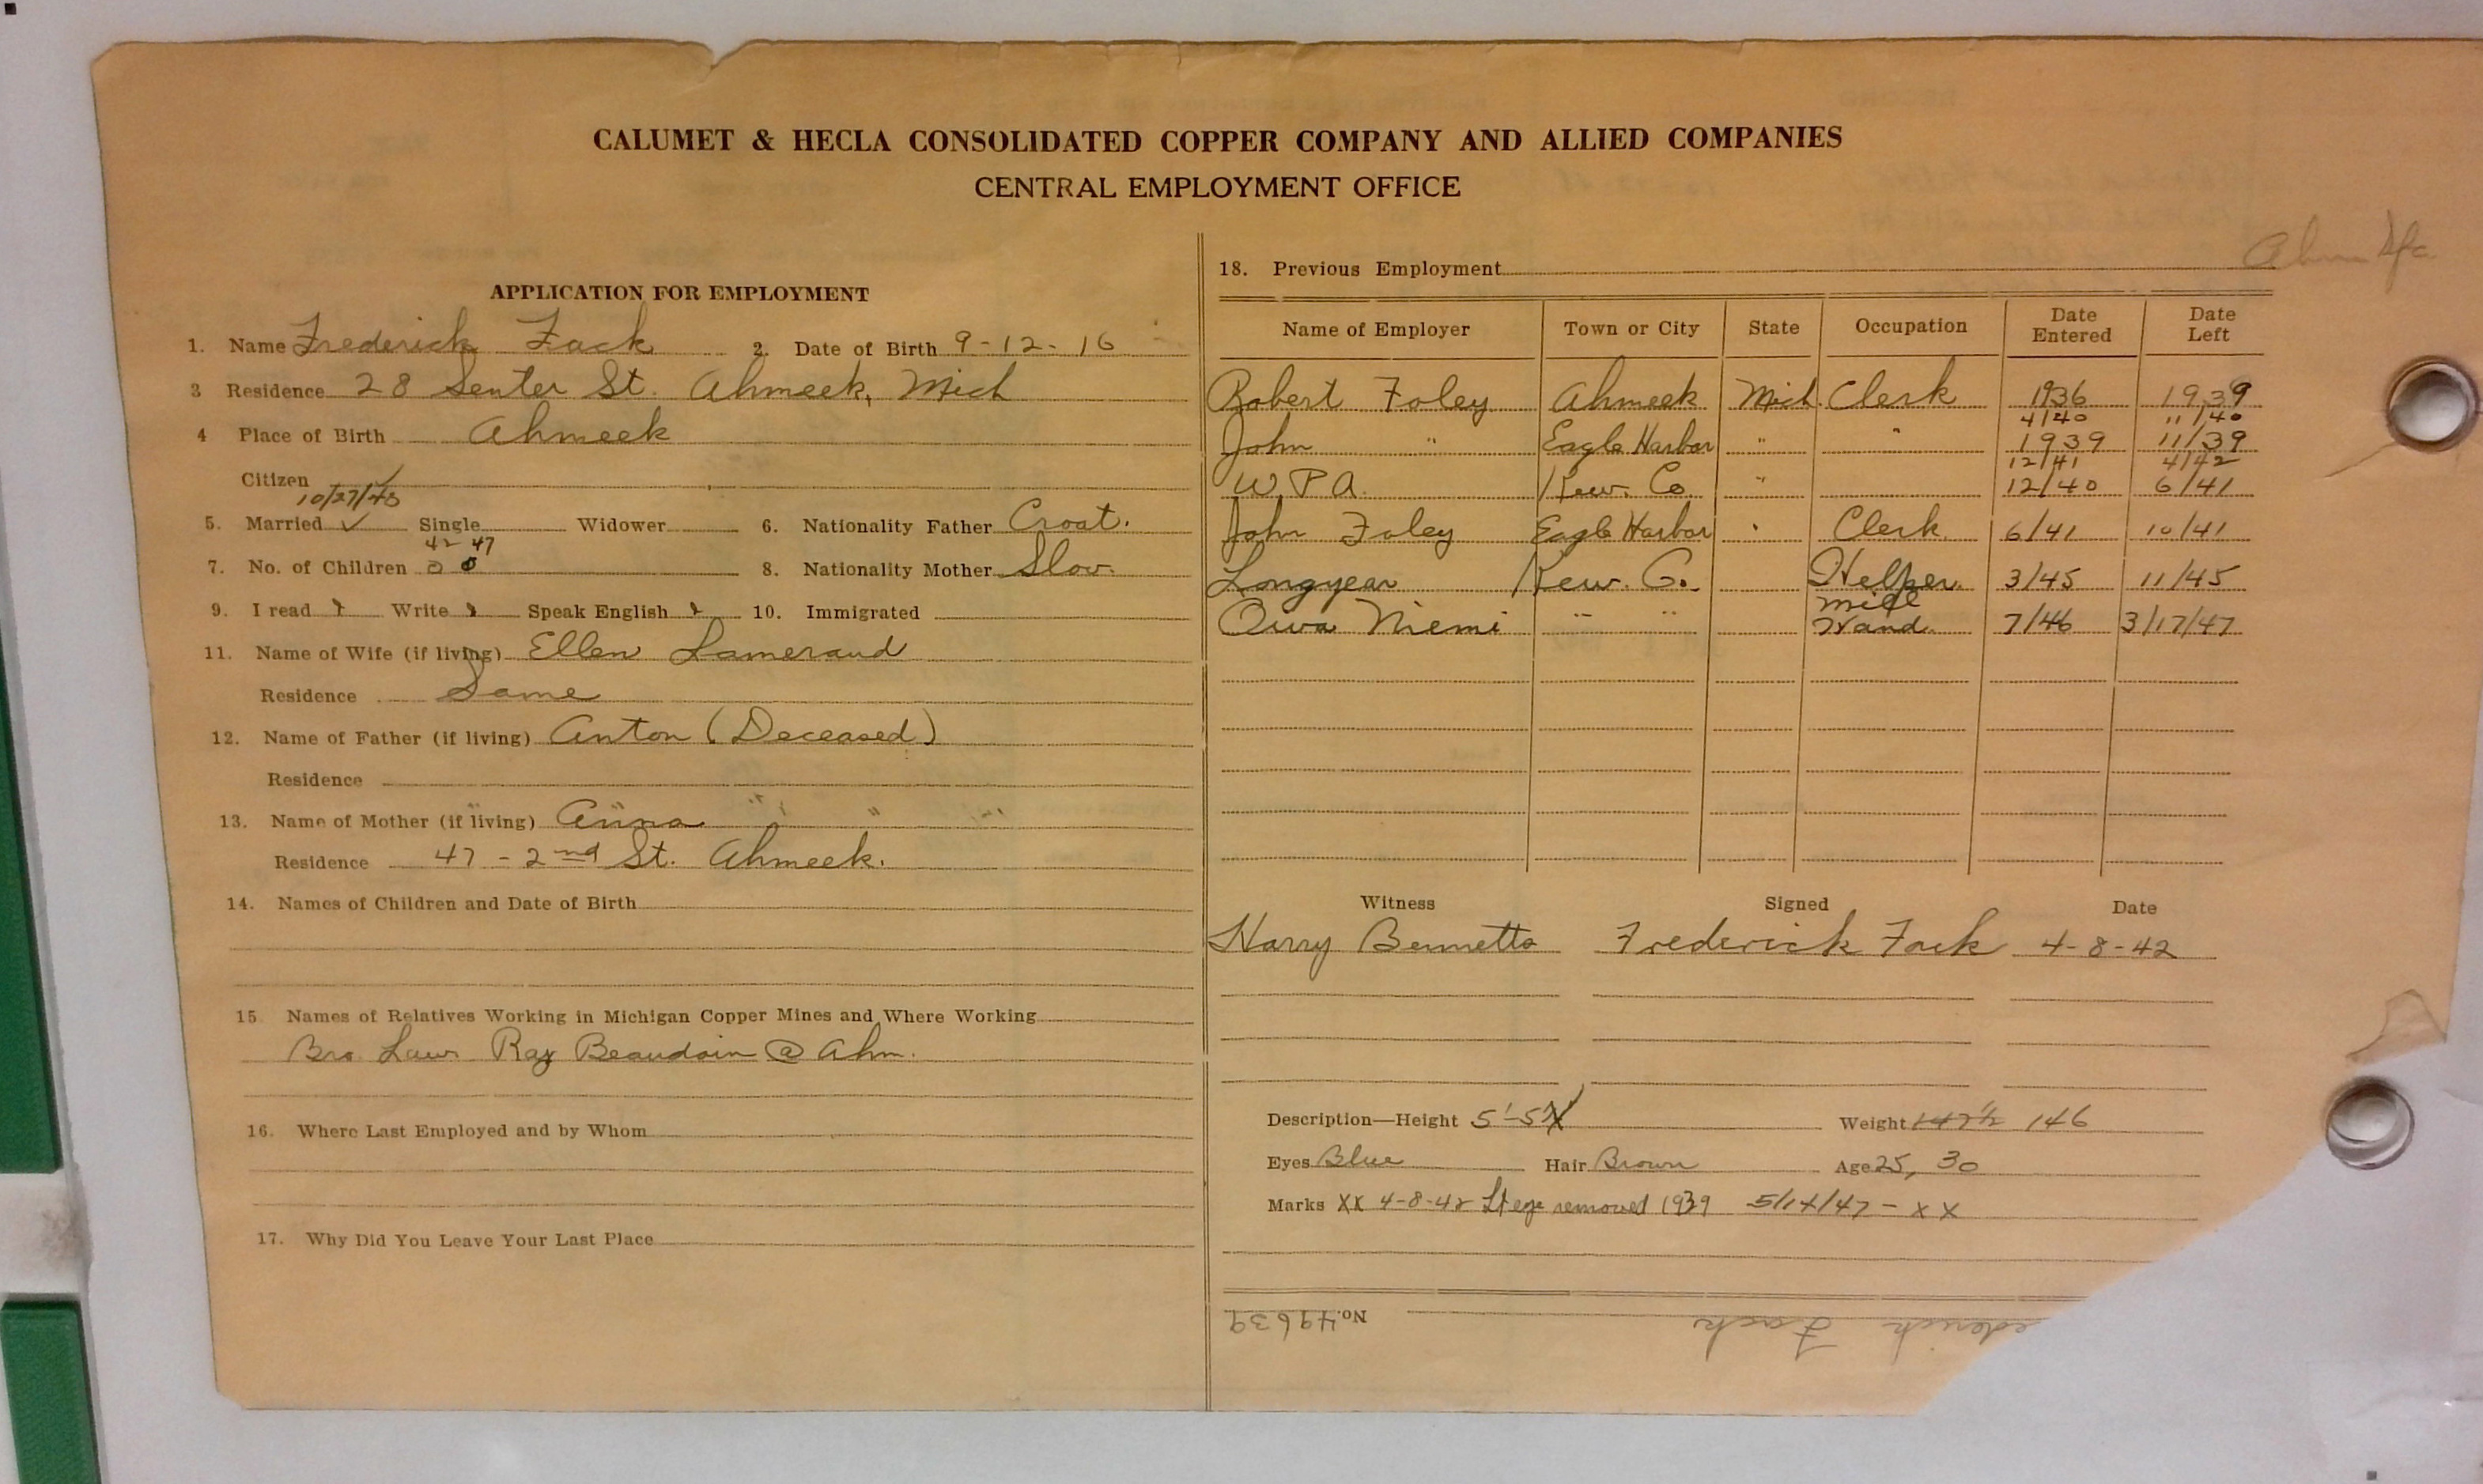 CALUMET & HECLA CONSOLIDATED COPPER COMPANY AND ALLIED COMPANIES
CENTRAL EMPLOYMENT OFFICE
APPLICATION FOR EMPLOYMENT
1. Name Frederick Fack 2. Date of Birth 9-12-16
3 Residence 28 Senter St. Ahmeek, Mich
4 Place of Birth Ahmeek
Citizen ✓
10/27/45
5. Married ✓ Single Widower 6. Nationality Father Croat.
42 47
7. No. of Children 0 0 8. Nationality Mother Slov.
9. I read Write Speak English 10. Immigrated
11. Name of Wife (if living) Ellen Lameraud
Residence Same
12. Name of Father (if living) Anton (Deceased)
Residence
13. Name of Mother (if living) Anna
Residence 47 - 2nd St. Ahmeek.
14. Names of Children and Date of Birth
15 Names of Relatives Working in Michigan Copper Mines and Where Working
Bro Law Ray Beaudoin @ Ahm.
16. Where Last Employed and by Whom
17. Why Did You Leave Your Last Place
Ahm
18. Previous Employment
Name of Employer Town or City State Occupation Date Entered Date Left
Robert Foley Ahmeek Mich. Clerk 1936 1939
4/40 11/40
John " Eagle Harbor " " 1939 11/39
12/41 4/42
W.P.A. Kew. Co. " 12/40 6/41
John Foley Eagle Harbor " Clerk 6/41 10/41
Longyear Kew. Co. Helper 3/45 11/45
Mill
Niemi " " Hand 7/46 3/17/47
Witness Signed Date
Harry Bennetts Frederick Fack 4-8-42
Description—Height 5'-5 Weight 147½ 146
Eyes Blue Hair Brown Age 25, 30
Marks XX 4-8-42 Lt eye removed 1939 5/14/47 - XX
No. 49639 ederick Fack